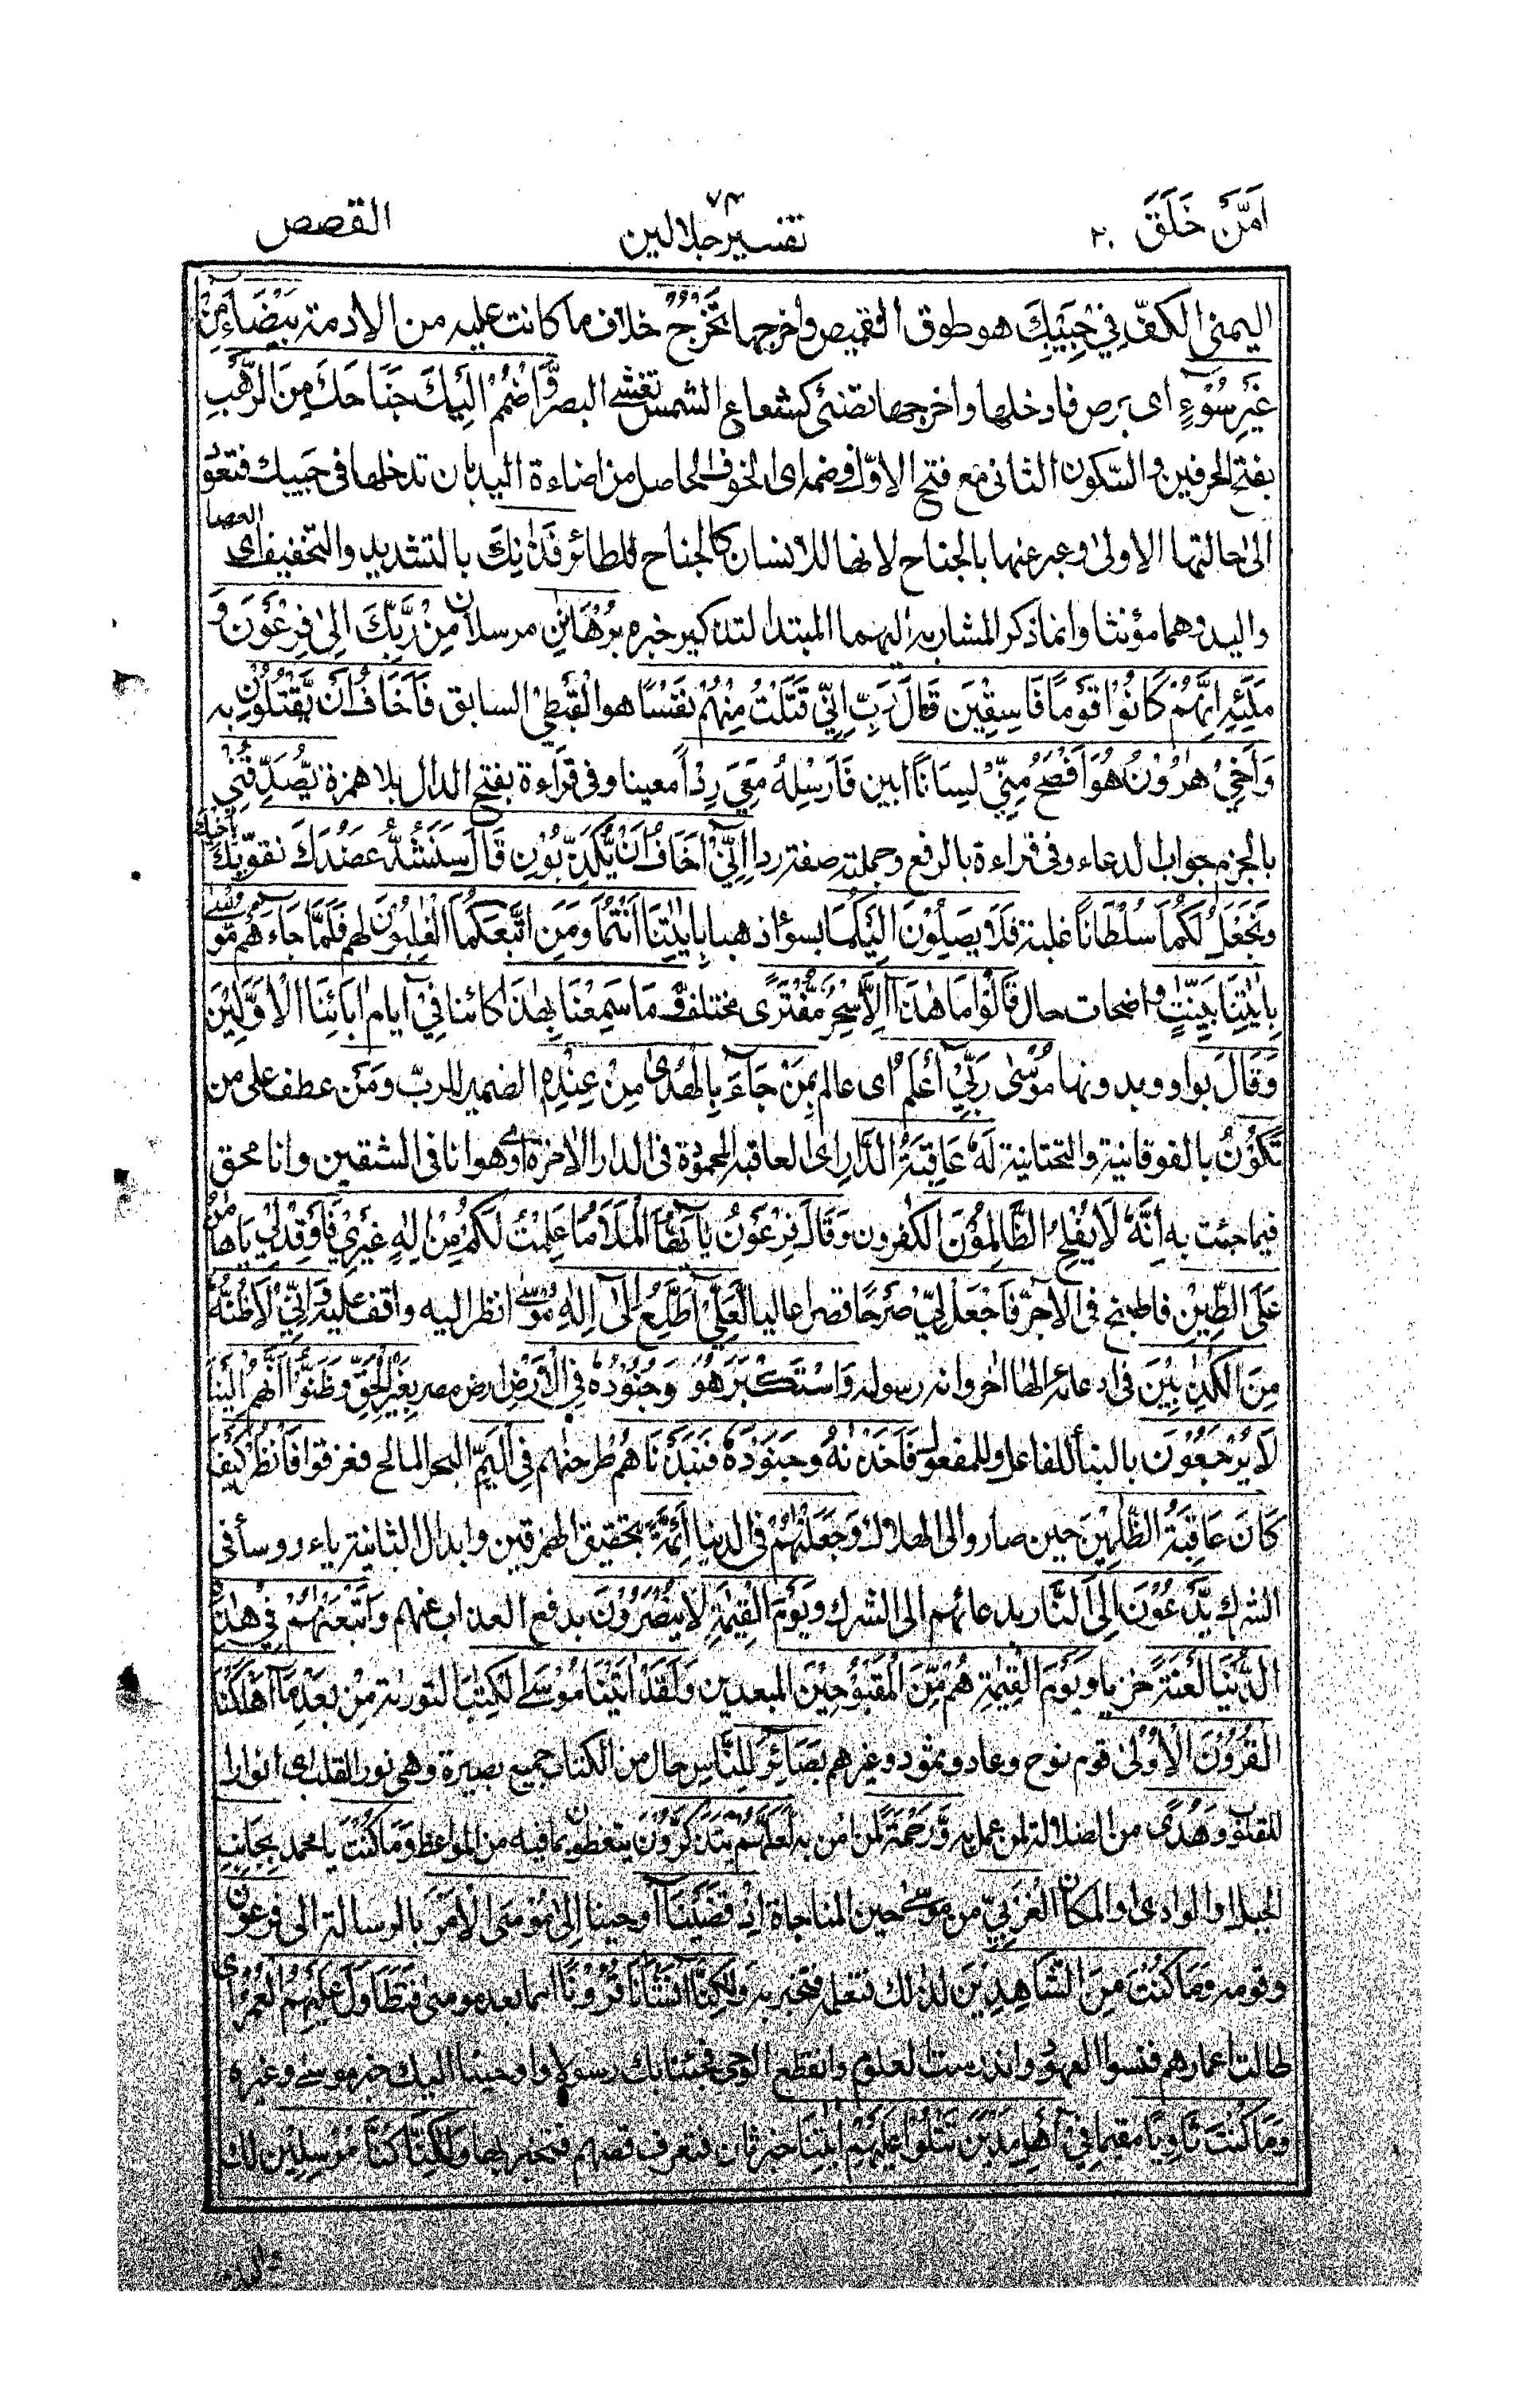 اَمَّنْ خَلَقَ ٢٠
٧٤
تفسير جلالين
القصص
اليمنى الكفّ فِيْ جَيْبِكَ هو طوق القميص واخرجها تَخْرُجْ خلاف ما كانت عليه من الادمة بَيْضَآءَ مِنْ
غَيْرِ سُوْٓءٍ اى برص فادخلها واخرجها تضئ كشعاع الشمس تغشى البصر وَّاضْمُمْ اِلَيْكَ جَنَاحَكَ مِنَ الرَّهْبِ
بفتح الحرفين والسّكون الثانى مع فتح الاوّل وضمه اى الخوف الحاصل من اضاءة اليد بان تدخلها فى جيبك فتعود
الى حالتها الاولى وعبر عنها بالجناح لانها للانسان كالجناح للطائر فَذٰنِكَ بالتشديد والتخفيف اى العصا
واليد وهما مؤنثا وانما ذكر المشار به اليهما المبتدا لتذكير خبره بُرْهَانٰنِ مرسلان مِنْ رَّبِّكَ اِلٰى فِرْعَوْنَ وَ
مَلَئِهٖ اِنَّهُمْ كَانُوْا قَوْمًا فَاسِقِيْنَ قَالَ رَبِّ اِنِّيْ قَتَلْتُ مِنْهُمْ نَفْسًا هو القبطى السابق فَاَخَافُ اَنْ يَّقْتُلُوْنِ به
وَاَخِيْ هٰرُوْنُ هُوَ اَفْصَحُ مِنِّيْ لِسَانًا ابين فَاَرْسِلْهُ مَعِيَ رِدْاً معينا وفى قراءة بفتح الدال بلا همزة يُّصَدِّقُنِيْ
بالجزم جواب الدعاء وفى قراءة بالرفع وجملته صفة ردا اِنِّيْ اَخَافُ اَنْ يُّكَذِّبُوْنِ قَالَ سَنَشُدُّ عَضُدَكَ نقوّيك بِاَخِيْكَ
وَنَجْعَلُ لَكُمَا سُلْطَانًا غلبة فَلَا يَصِلُوْنَ اِلَيْكُمَا بسوء اذهبا بِاٰيٰتِنَا اَنْتُمَا وَمَنِ اتَّبَعَكُمَا الْغٰلِبُوْنَ لهم فَلَمَّا جَاءَهُمْ مُّوْسٰى
بِاٰيٰتِنَا بَيِّنٰتٍ واضحات حال قَالُوْا مَا هٰذَا اِلَّا سِحْرٌ مُّفْتَرًى مختلق وَّمَا سَمِعْنَا بِهٰذَا كائنا فِيْٓ ايام اٰبَائِنَا الْاَوَّلِيْنَ
وَقَالَ بواو وبدونها مُوْسٰى رَبِّيْٓ اَعْلَمُ اى عالم بِمَنْ جَآءَ بِالْهُدٰى مِنْ عِنْدِهٖ الضمير للرب وَمَنْ عطف على من
تَكُوْنُ بالفوقانية والتحتانية لَهٗ عَاقِبَةُ الدَّارِ اى العاقبة المحمودة فى الدار الاخرة اى وهو انا فى الشقين وانا محق
فيما جئت به اِنَّهٗ لَا يُفْلِحُ الظَّالِمُوْنَ الكفرون وَقَالَ فِرْعَوْنُ يٰٓاَيُّهَا الْمَلَاُ مَا عَلِمْتُ لَكُمْ مِّنْ اِلٰهٍ غَيْرِيْ فَاَوْقِدْ لِيْ يٰهَامٰنُ
عَلَى الطِّيْنِ فاطبخ فى الآجرّ فَاجْعَلْ لِّيْ صَرْحًا قصرا عاليا لَّعَلِّيْٓ اَطَّلِعُ اِلٰٓى اِلٰهِ مُوْسٰى انظر اليه واقف عليه وَاِنِّيْ لَاَظُنُّهٗ
مِنَ الْكٰذِبِيْنَ فى ادعائه الها اٰخر وانه رسوله وَاسْتَكْبَرَ هُوَ وَجُنُوْدُهٗ فِي الْاَرْضِ ارض مصر بِغَيْرِ الْحَقِّ وَظَنُّوْٓا اَنَّهُمْ اِلَيْنَا
لَا يُرْجَعُوْنَ بالبنأ للفاعل وللمفعول فَاَخَذْنٰهُ وَجُنُوْدَهٗ فَنَبَذْنَاهُمْ طرحنٰهم فِي الْيَمِّ البحر المالح فغرقوا فَانْظُرْ كَيْفَ
كَانَ عَاقِبَةُ الظّٰلِمِيْنَ حين صاروا الى الهلاك وَجَعَلْنٰهُمْ فى الدنيا اَئِمَّةً بتحقيق الهمزتين وابدال الثانية ياء روسأ فى
الشرك يَّدْعُوْنَ اِلَى النَّارِ بدعائهم الى الشرك وَيَوْمَ الْقِيٰمَةِ لَا يُنْصَرُوْنَ بدفع العذاب عنهم وَاَتْبَعْنٰهُمْ فِيْ هٰذِهِ
الدُّنْيَا لَعْنَةً خزيا وَيَوْمَ الْقِيٰمَةِ هُمْ مِّنَ الْمَقْبُوْحِيْنَ المبعدين وَلَقَدْ اٰتَيْنَا مُوْسَى الْكِتٰبَ التورىة مِنْۢ بَعْدِ مَآ اَهْلَكْنَا
الْقُرُوْنَ الْاُوْلٰى قوم نوح وعاد وثمود وغيرهم بَصَآئِرَ لِلنَّاسِ حال من الكتاب جمع بصيرة وهى نور القلب اى انوارا
للقلوب وَهُدًى من الضلالة لمن عمل به وَّرَحْمَةً لمن اٰمن به لَعَلَّهُمْ يَتَذَكَّرُوْنَ يتعظون بما فيه من المواعظ وَمَا كُنْتَ يا محمد بِجَانِبِ
الجبل او الوادى او المكان الْغَرْبِيِّ من موسى حين المناجاة اِذْ قَضَيْنَآ اوحينا اِلٰى مُوْسَى الْاَمْرَ بالرسالة الى فرعون
وقومه وَمَا كُنْتَ مِنَ الشَّاهِدِيْنَ لذلك فتعلمه فتخبر به وَلٰكِنَّآ اَنْشَاْنَا قُرُوْنًا امما بعد موسى فَتَطَاوَلَ عَلَيْهِمُ الْعُمُرُ اى
طالت اعمارهم فنسوا العهود واندرست العلوم وانقطع الوحى فجئنا بك رسولا واوحينا اليك خبر موسى وغيره
وَمَا كُنْتَ ثَاوِيًا مقيما فِيْٓ اَهْلِ مَدْيَنَ تَتْلُوْا عَلَيْهِمْ اٰيٰتِنَا خبر ثان فتعرف قصتهم فتخبر بها وَلٰكِنَّا كُنَّا مُرْسِلِيْنَ لك